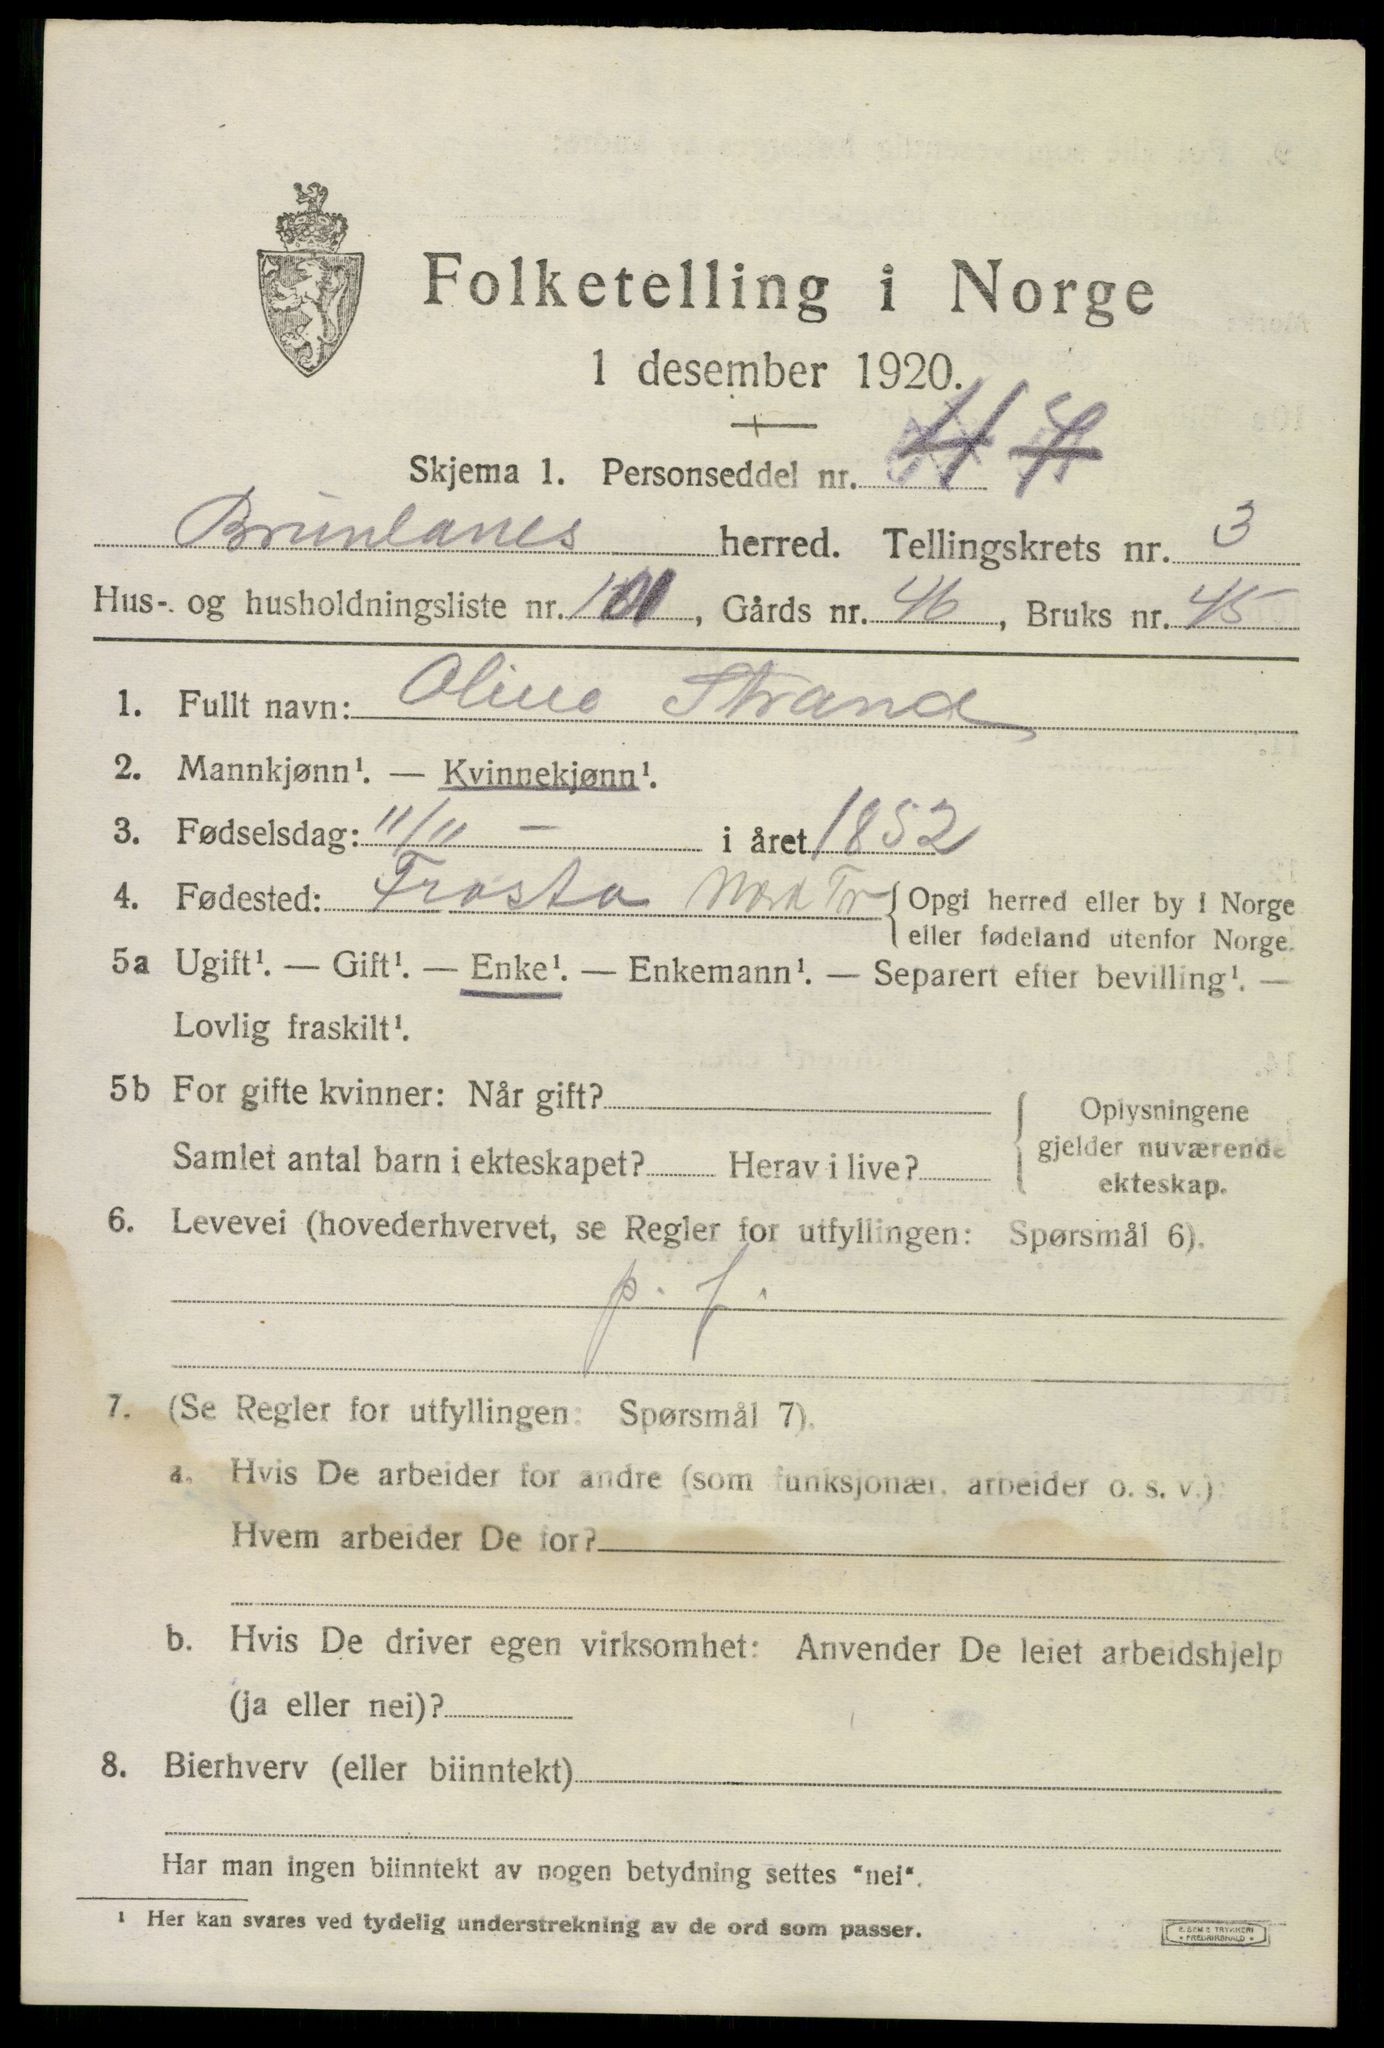 Folketelling i Norge
1 desember 1920.
Skjema 1. Personseddel nr.
Brunlanes herred. Tellingskrets nr. 3
Hus- og husholdningsliste nr. 101, Gårds nr. 46, Bruks nr. 45
1. Fullt navn: Oline Strand
2. Mannkjønn¹. — Kvinnekjønn¹.
3. Fødselsdag: 11/11 — i året 1852
4. Fødested: Frosta Nord Tr { Opgi herred eller by i Norge
eller fødeland utenfor Norge.
5a Ugift¹. — Gift¹. — Enke¹. — Enkemann¹. — Separert efter bevilling¹. —
Lovlig fraskilt¹.
5b For gifte kvinner: Når gift?
Samlet antal barn i ekteskapet? Herav i live?
Oplysningene
gjelder nuværende
ekteskap.
6. Levevei (hovederhvervet, se Regler for utfyllingen: Spørsmål 6).
p. f.
7. (Se Regler for utfyllingen: Spørsmål 7).
a. Hvis De arbeider for andre (som funksjonær, arbeider o. s. v.):
Hvem arbeider De for?
b. Hvis De driver egen virksomhet: Anvender De leiet arbeidshjelp
(ja eller nei)?
8. Bierhverv (eller biinntekt)
Har man ingen biinntekt av nogen betydning settes "nei".
¹ Her kan svares ved tydelig understrekning av de ord som passer.
E. SEM'S TRYKKERI
* FREDRIKSHALD *